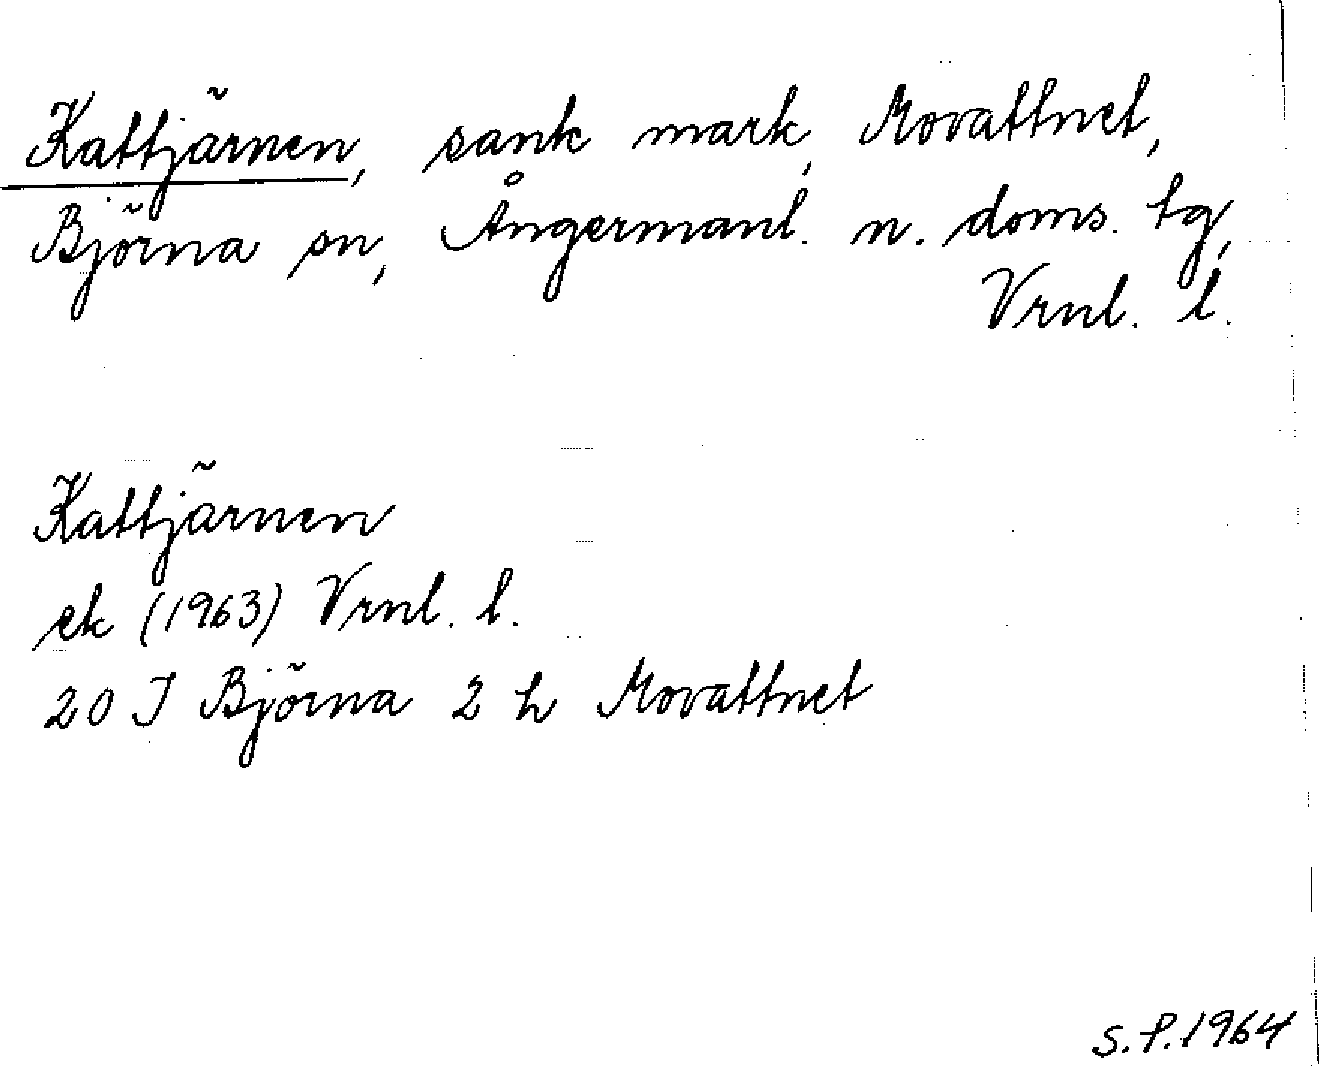 Kattjärnen, sank mark, Movattnet,
Björna sn, Ångermanl. n. doms. tg,
Vrnl. l.
Kattjärnen
ek (1963) Vrnl. l.
20 J Björna 2 h Movattnet
S.P.1964